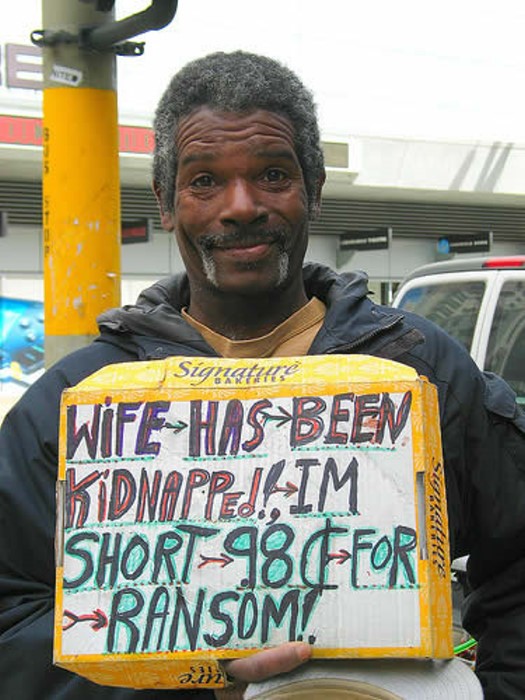 Signature
BAKERIES
WiFE→HAS→BEEN
KiDNAPPed!!,→IM
SHORT→98¢→FOR
→RANSOM!
Signature
BUS STOP